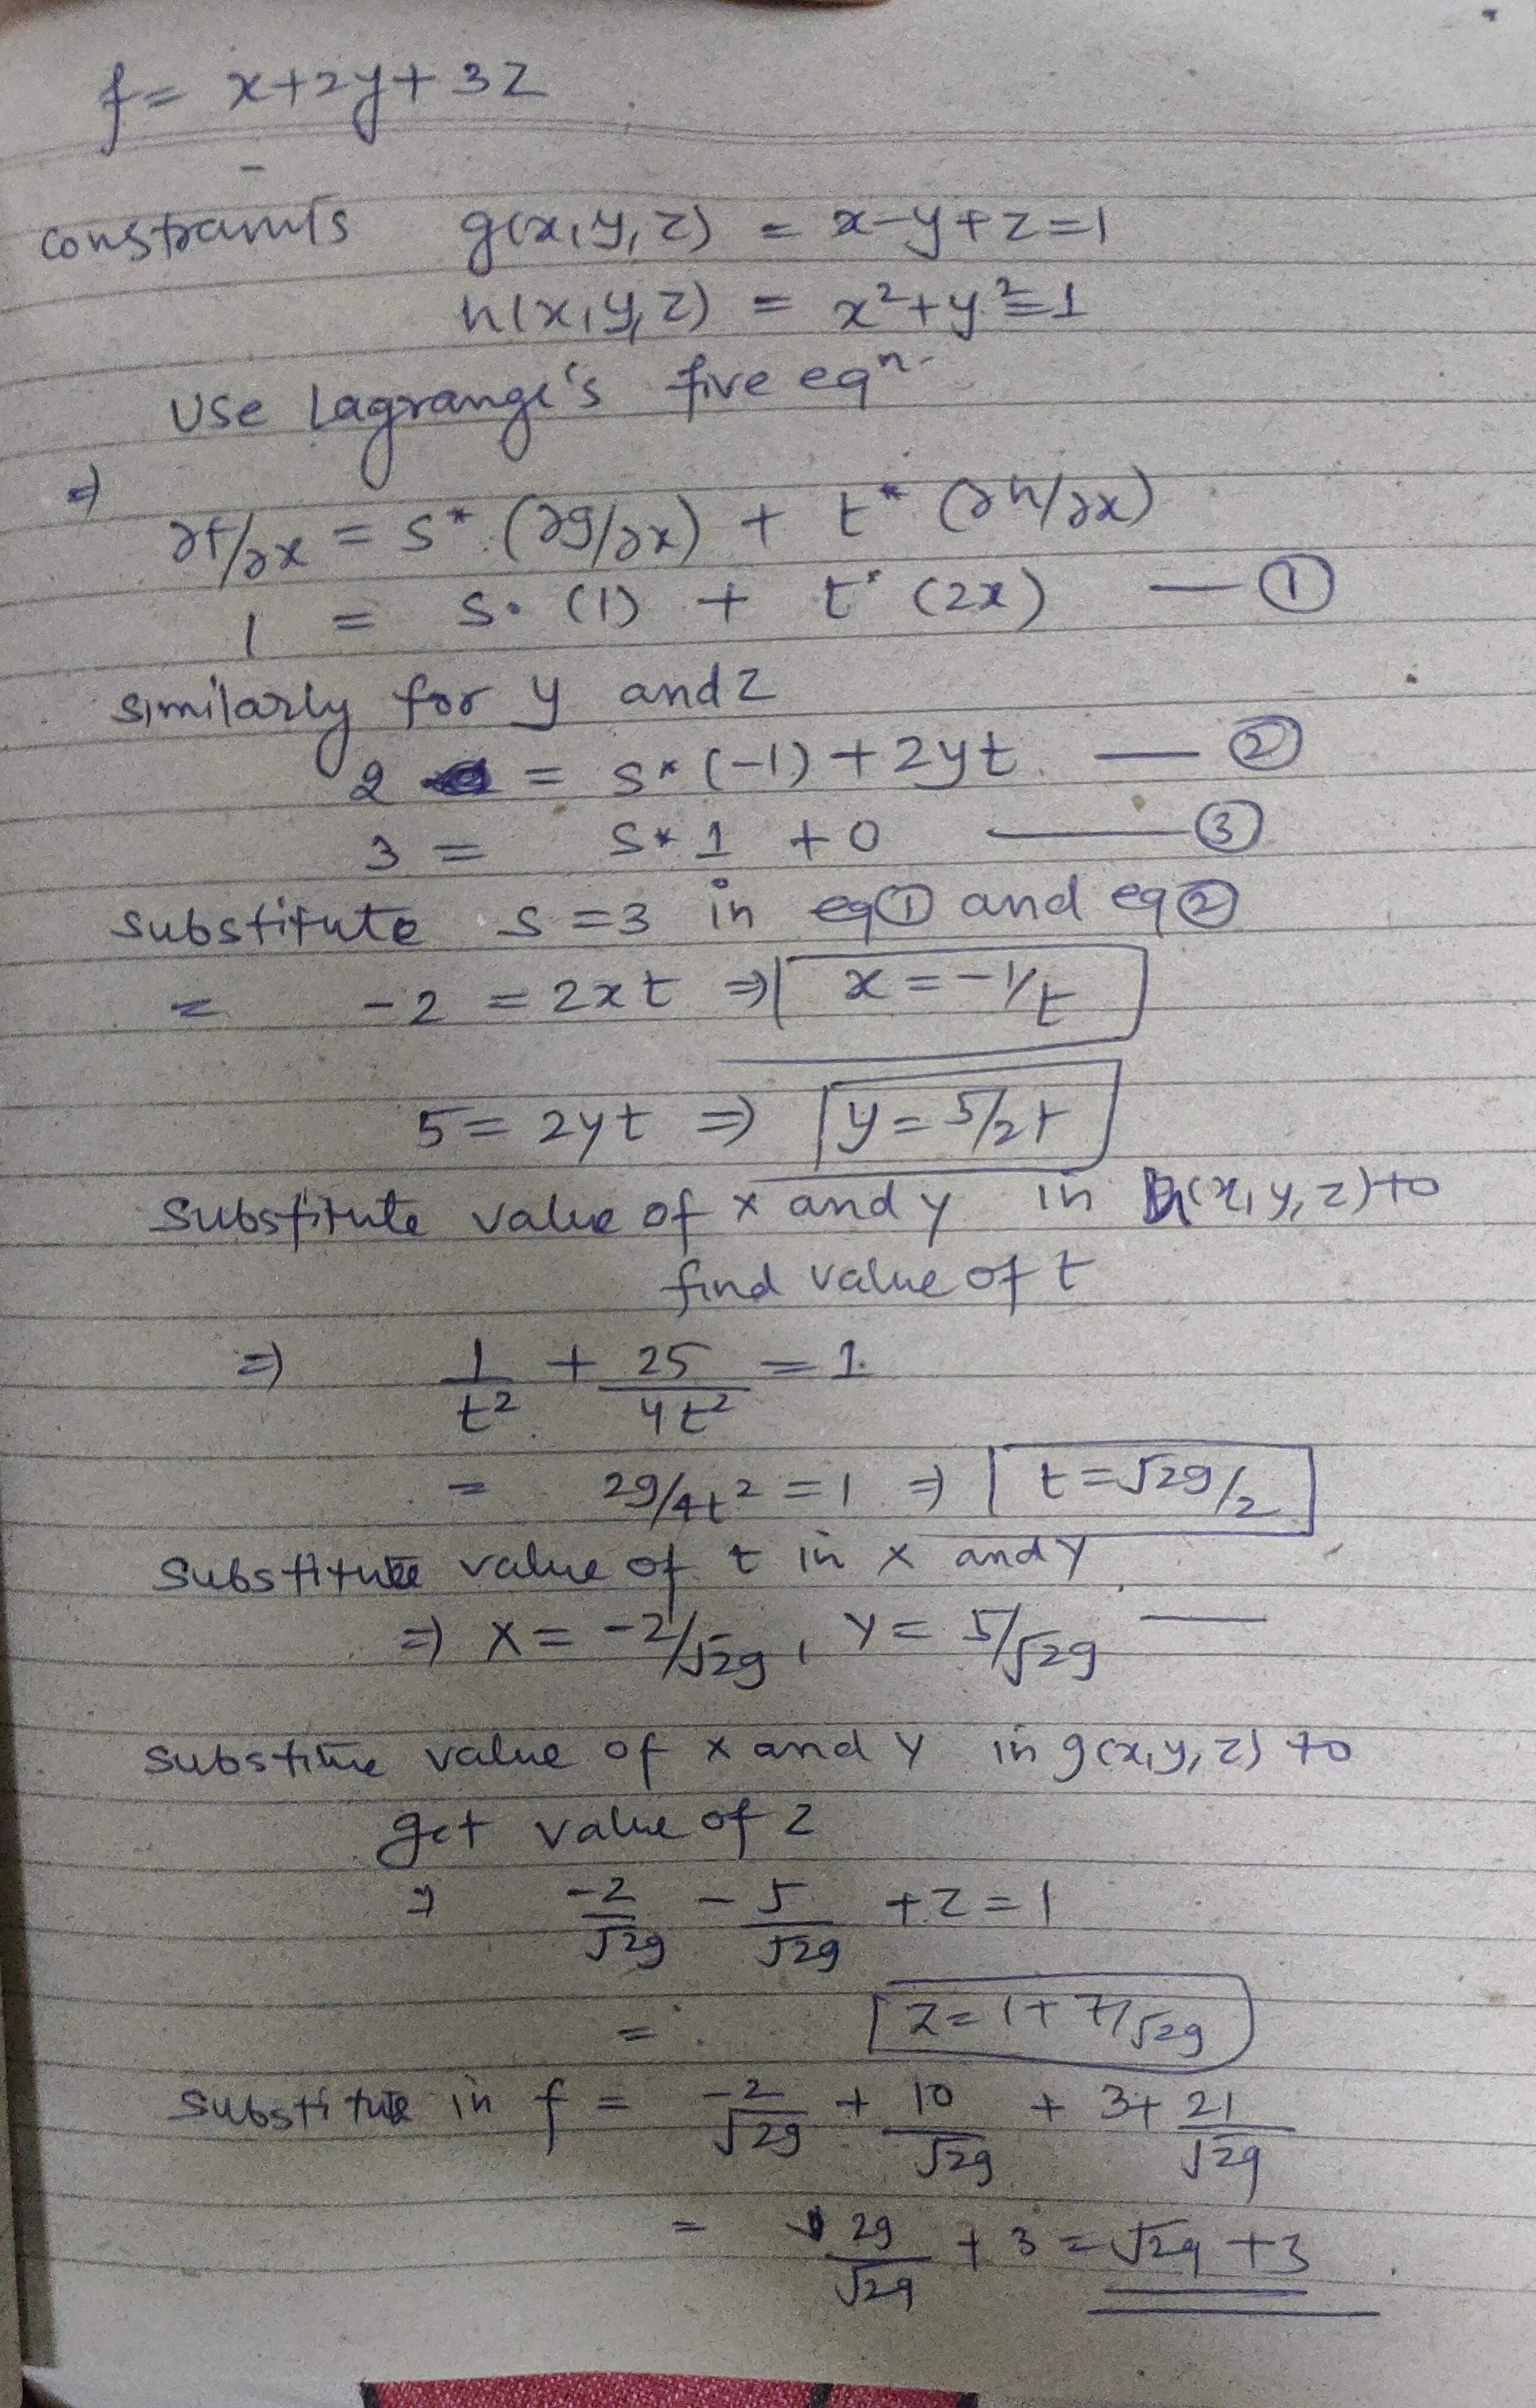 f = x+2y+3z
constraints g(x,y,z) = x-y+z=1
h(x,y,z) = x²+y²=1
Use Lagrange's five eqn.
⇒
∂f/∂x = s* (∂g/∂x) + t* (∂h/∂x)
1 = s. (1) + t* (2x) — ①
similarly for y and z
2 = s* (-1) + 2yt — ②
3 = s* 1 + 0 — ③
substitute s=3 in eq① and eq②
= -2 = 2xt ⇒ x = -1/t
5 = 2yt ⇒ y = 5/2t
substitute value of x and y in h(x,y,z) to
find value of t
⇒ 1/t² + 25/4t² = 1
= 29/4t² = 1 ⇒ t = √29/2
substitute value of t in x and y
⇒ x = -2/√29, y = 5/√29
substitue value of x and y in g(x,y,z) to
get value of z
⇒ -2/√29 - 5/√29 + z = 1
= z = 1 + 7/√29
substitute in f = -2/√29 + 10/√29 + 3 + 21/√29
= 29/√29 + 3 = √29 + 3